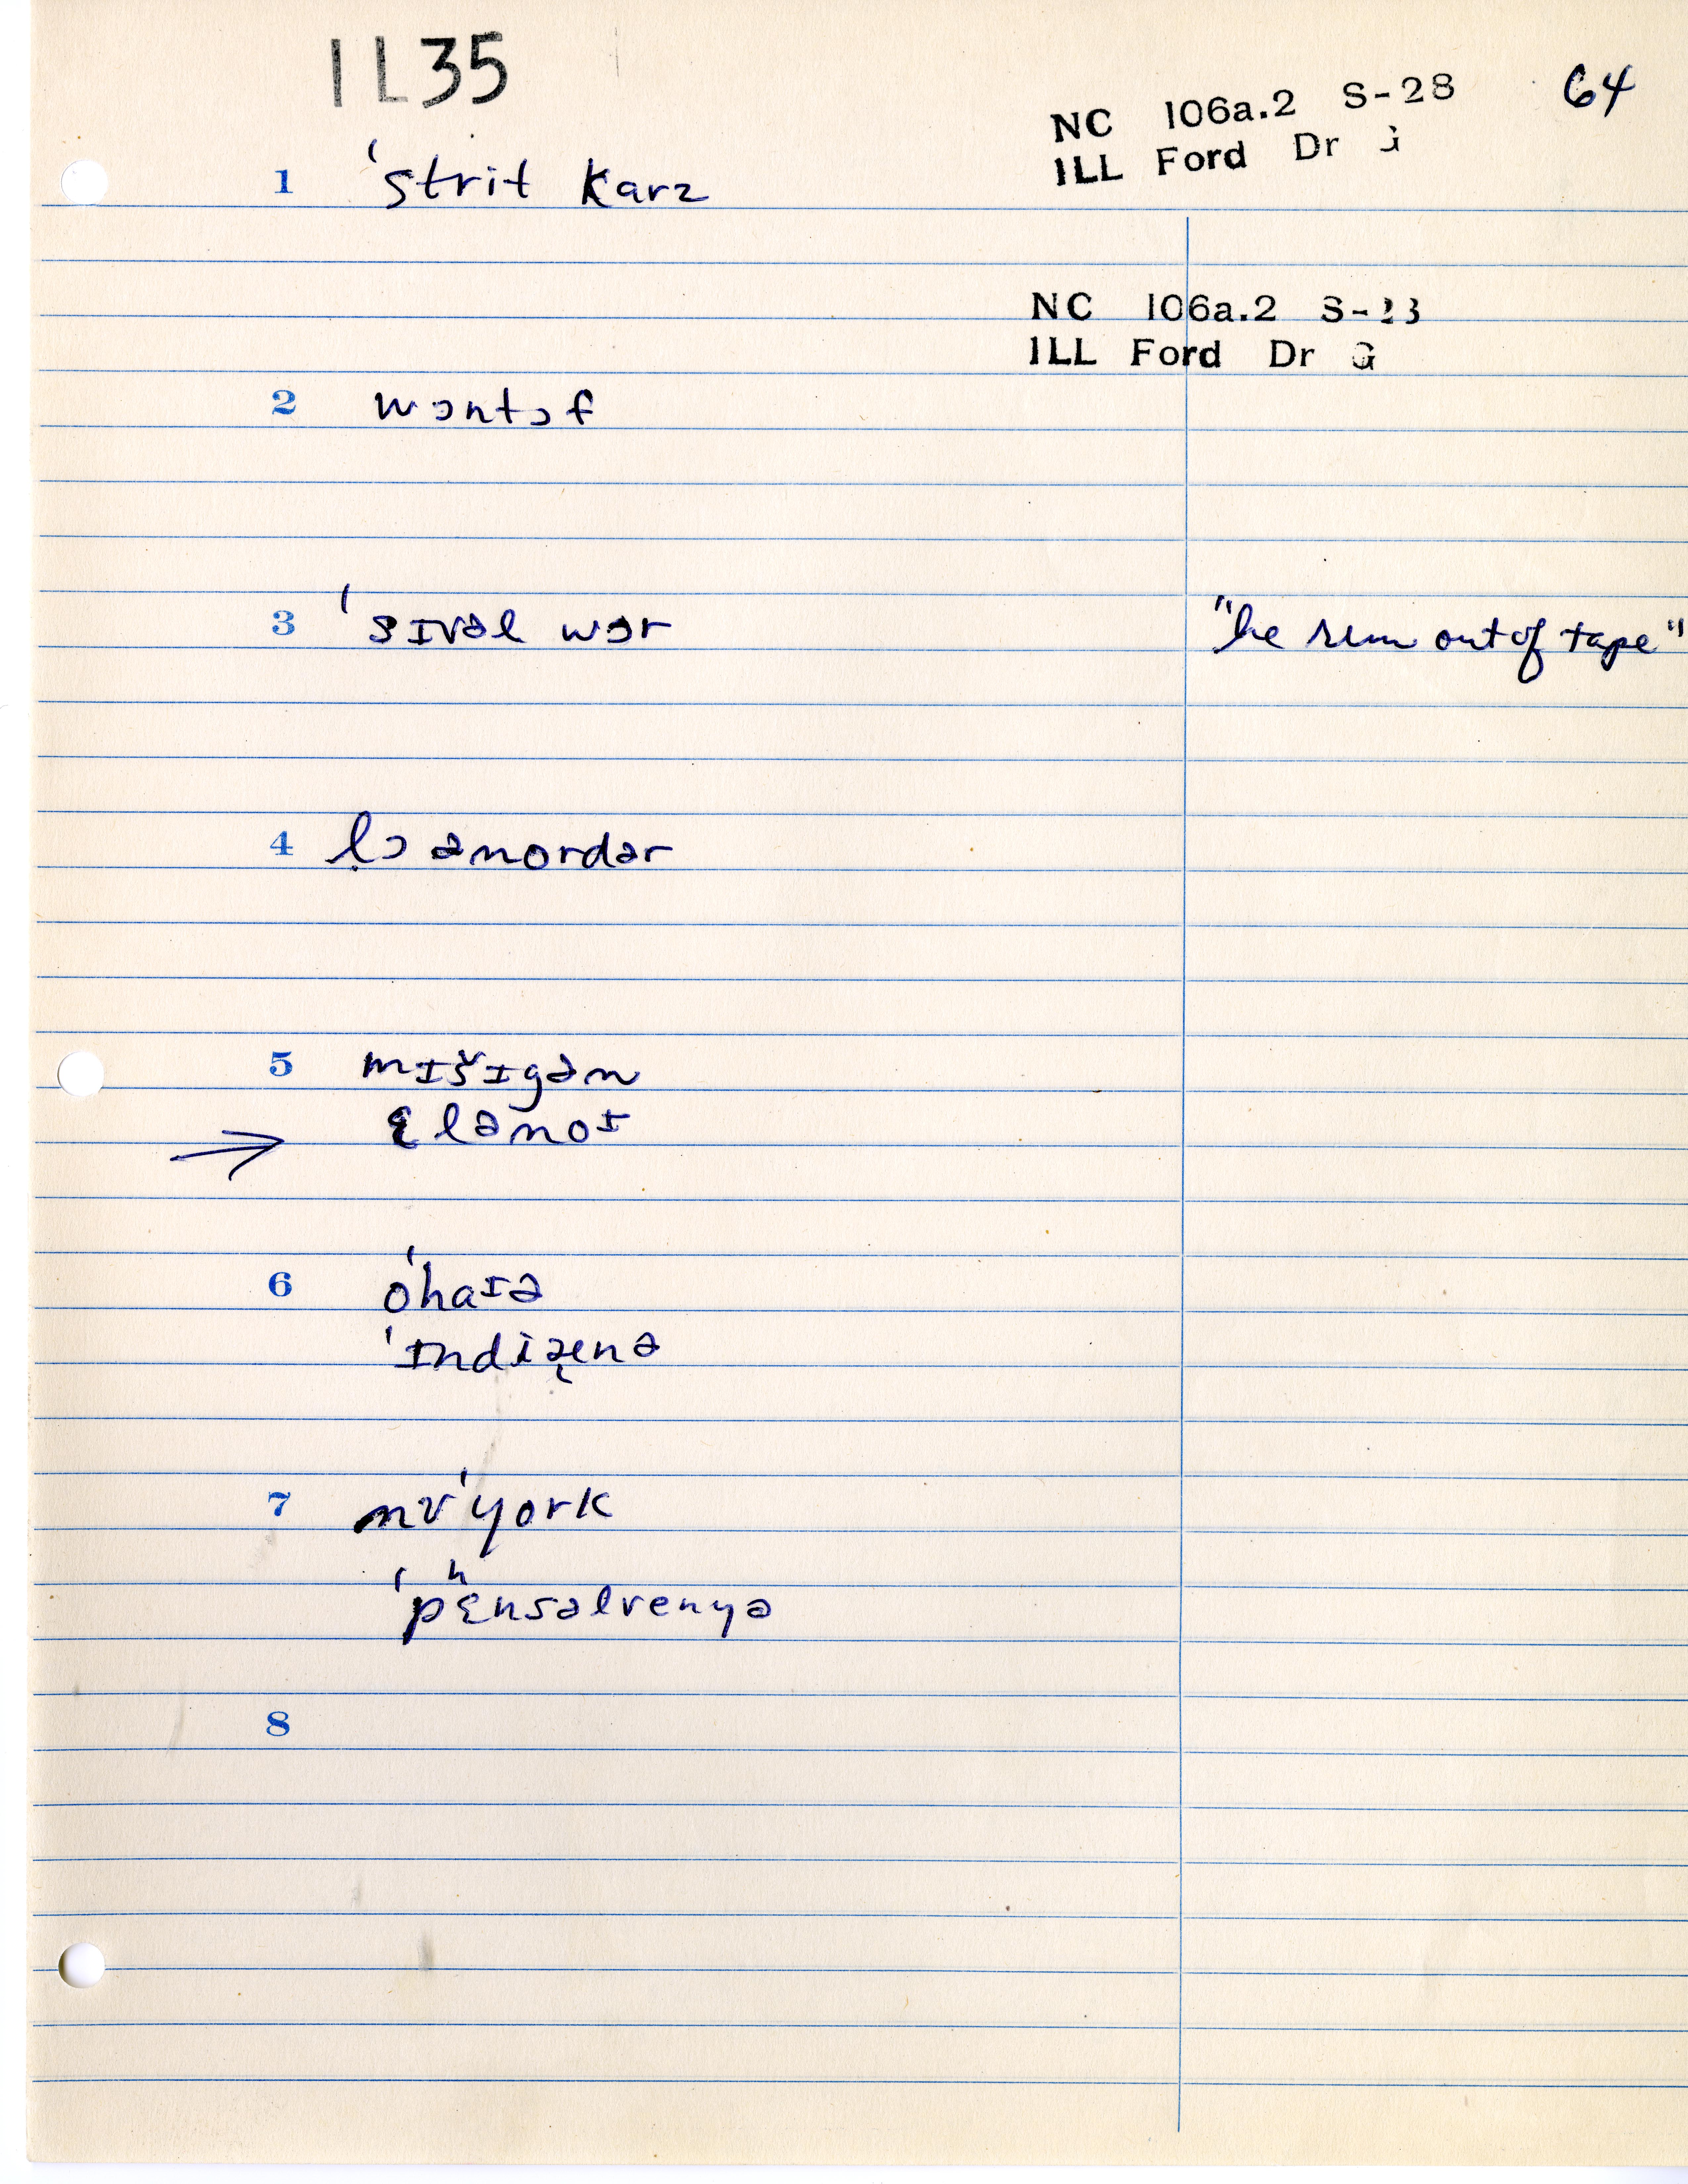 IL35
NC 106a.2 S-28 64
ILL Ford Dr G
1 'strit karz
NC 106a.2 S-28
ILL Ford Dr G
2 wɔntəf
3 'sɪvəl wɔr "he run out of tape"
4 l̩ɔ ənordər
5 mɪšɪgən
→ ɛlənoɪ
6 o'haɪə
'ɪndiænə
7 nu'york
'pʰɛnsəlvenyə
8